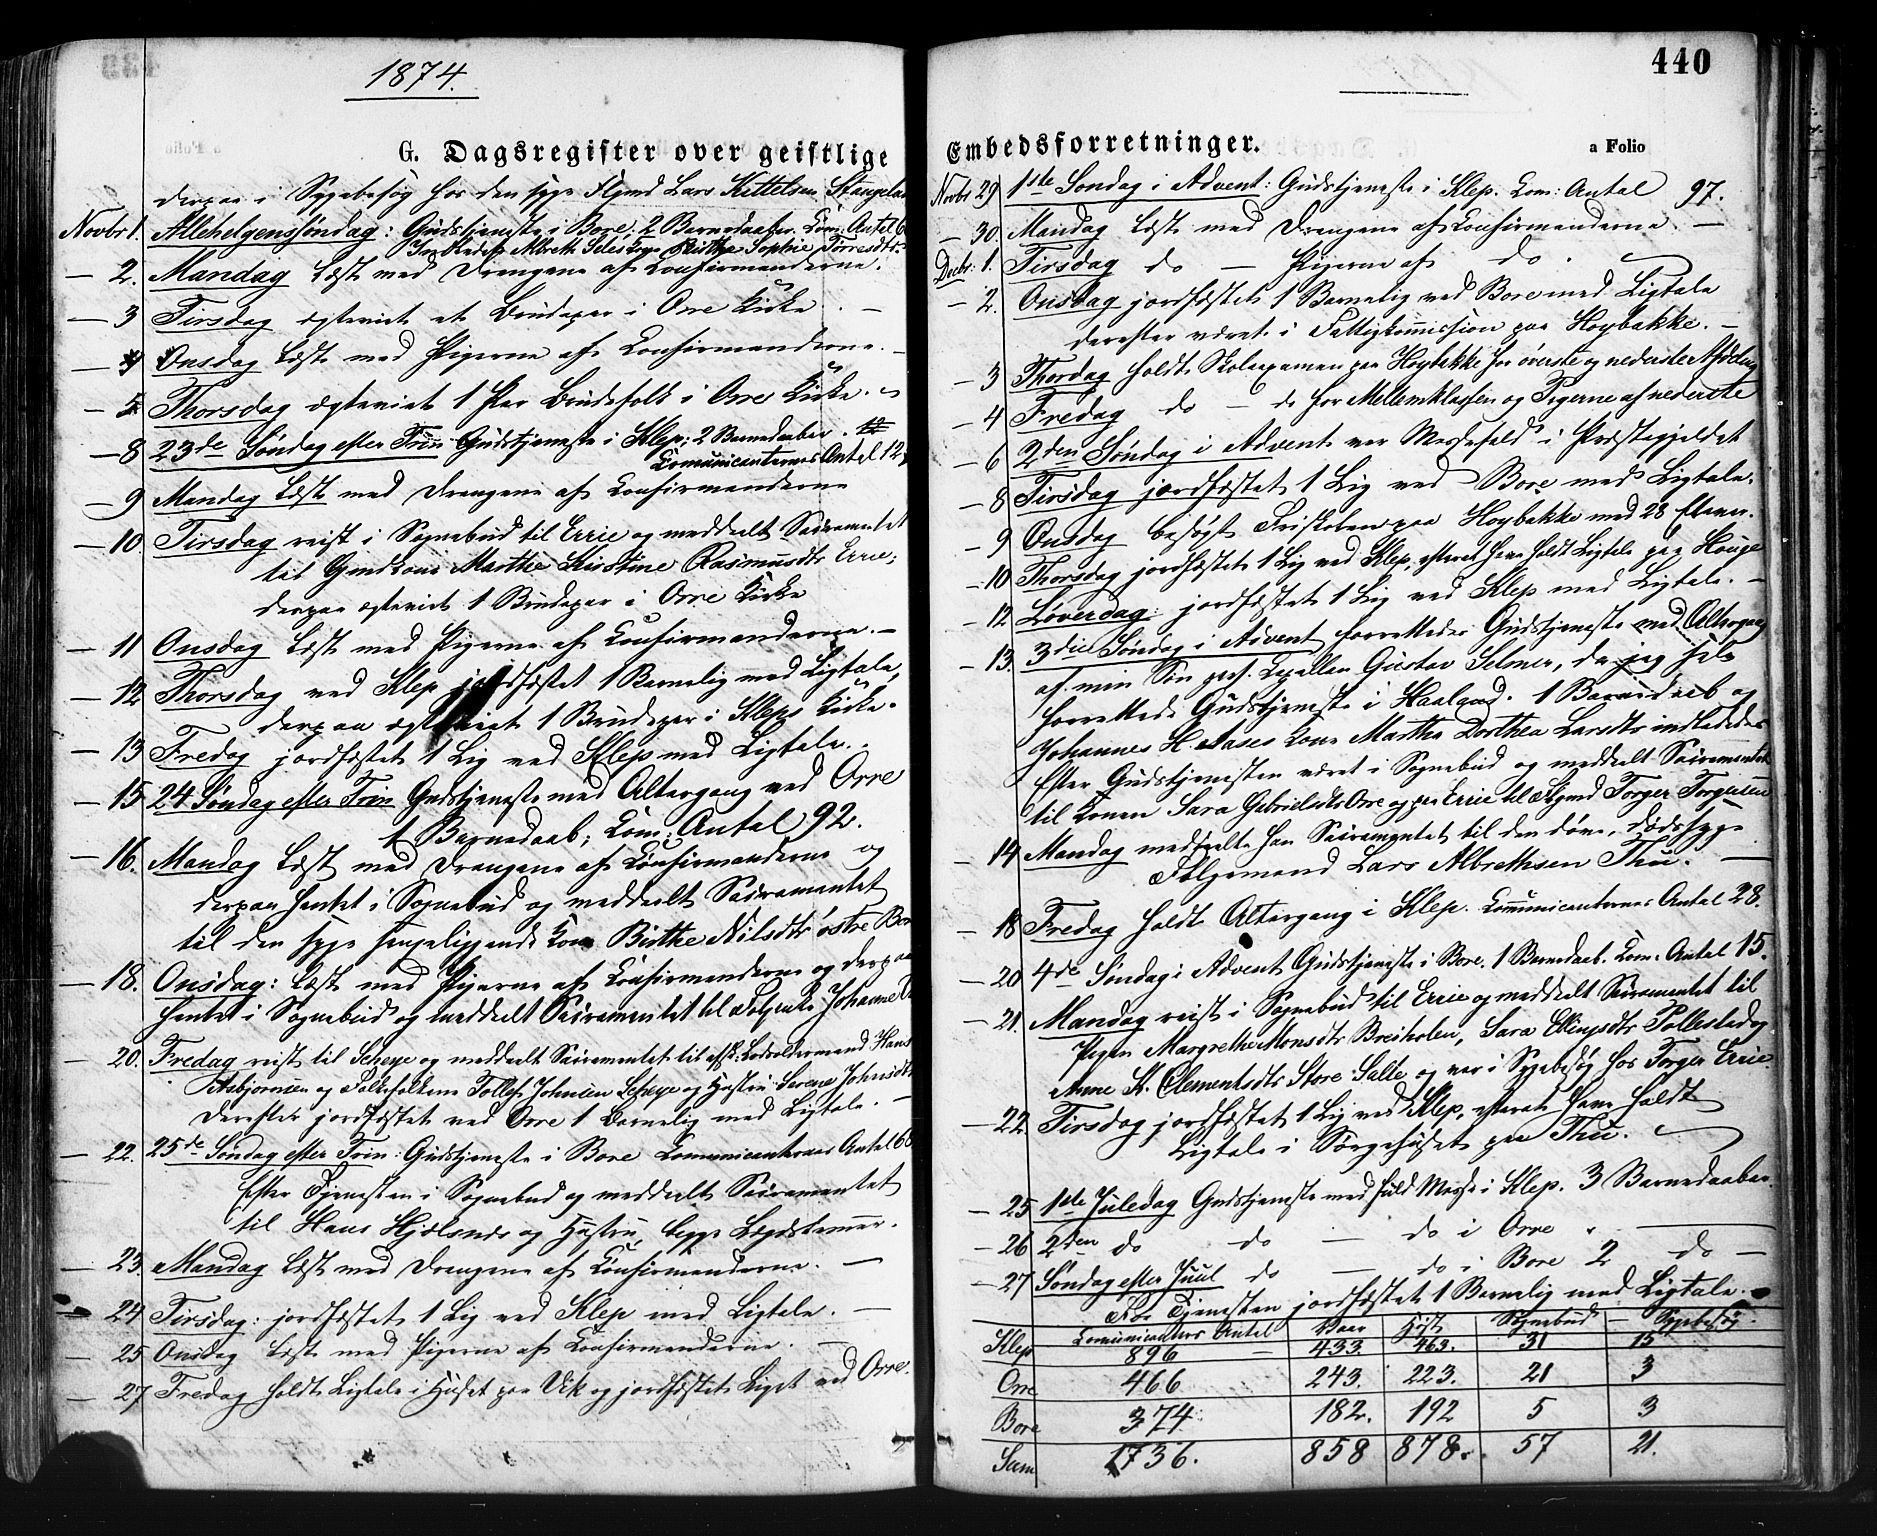 1874.
G. Dagsregister over geistlige
derpaa i Sygebesøg hos den syge Flgmd Lars Kittelsen Stangeland
Novbr 1. Allehelgensføndag: Gudstjeneste i Bore: 2 Barnedaaber. Com: Antal 6
Albreth Birthe Sophie
— 2. Mandag læst med Drengene af Confirmanderne.
— 3 Tirsdag ægteviet et Brudepar i Orre Kirke. —
— 4 Onsdag læst med Pigerne af Confirmanderne. —
— 5 Thorsdag ægteviet 1 Par Brudefolk i Orre Kirke.
— 8 23de Søndag efter Trin Gudstjeneste i Klep; 2 Barnedaaber.
Communicanternes Antal 12
— 9 Mandag læst med Drengene af Confirmanderne
— 10. Tirsdag reist i Sognebud til Errie og meddeelt Sacramentet
til Gmdkone Marthe Kirstine Rasmusdtr Errie;
derpaa ægteviet 1 Brudepar i Orre Kirke
— 11 Onsdag læst med Pigerne af Confirmanderne. —
— 12 Thorsdag ved Klep jordfæstet 1 Barnelig med Ligtale,
derpaa ægteviet 1 Brudepar i Kleps Kirke.
— 13 Fredag jordfæstet 1 Lig ved Klep med Ligtale.
— 15 24 Søndag efter Trin Gudstjeneste med Altergang ved Orre
1 Barnedaab; Com: Antal 92.
— 16. Mandag læst med Drengene af Confirmanderne og
derpaa hentet i Sognebud og meddeelt Sacramentet
til den syge sengeliggende Kone Birthe Nilsdtr østre Bore
— 18. Onsdag: læst med Pigerne af Confirmanderne og derpaa
hentet i Sognebud og meddeelt Sacramentet til Johanne
— 20. Fredag reist til og meddeelt Sacramentet til Hans
Asbjørnsen og Folkefolkene Tollef Johnsen og Hustru Serene Johnsdtr
derefter jordfæstet ved Orre 1 Barnelig med Ligtale. —
— 22. 25de Søndag efter Trin: Gudstjeneste i Bore Communicanternes Antal 66
Efter Tjenesten i Sognebud og meddeelt Sacramentet
til Hans og Hustru, begge Lægdslemmer.
— 23. Mandag læst med Drengene af Confirmanderne. —
— 24 Tirsdag: jordfæstet 1 Lig ved Klep med Ligtale. —
— 25 Onsdag læst med Pigerne af Confirmanderne. —
— 27 Fredag holdt Ligtale i Huset paa Vik og jordfæstet Liget ved Orre.
440
Embedsforretninger.
a Folio
Novbr 29 1ste Søndag i Advent: Gudstjeneste i Klep. Com: Antal 97.
— 30. Mandag læst med Drengene af Confirmanderne. —
Decbr: 1. Tirsdag do — Pigerne af do.
— 2. Onsdag jordfæstet 1 Barnelig ved Bore med Ligtale
derefter været i Fattigkommission paa Høybakke. —
— 3 Thorsdag holdt Skoleexamen paa Høybakke for øverste og nederste Afdeling
— 4 Fredag do — do for Mellemklassen og Pigerne af nederste
— 6 2den Søndag i Advent var Messefald i Præstegjeldet
— 8 Tirsdag jordfæstet 1 Lig ved Bore med Ligtale.
— 9 Onsdag besøgt Friskolen paa Høybakke med 28 Elever.
— 10 Thorsdag jordfæstet 1 Lig ved Klep, efterat have holdt Ligtale paa Houge
— 12 Løverdag: jordfæstet 1 Lig ved Klep med Ligtale. —
— 13. 3die Søndag i Advent forrettedes Gudstjeneste med Altergang
af min Søn pers. Capellan Gustav Selmer, da jeg selv
forrettede Gudstjeneste i Haaland. 1 Barnedaab og
Johannes H. Aases Kone Martha Dorthea Larsdtr indlededes
Efter Gudstjenesten været i Sognebud og meddeelt Sacramentet
til Konen Sara Gabrielsdtr Orre og paa Errie til Flgmd Torger Torgersen
— 14 Mandag meddeelte han Sacramentet til den døve, dødssyge
Følgemand Lars Albrethsen Thu. —
— 18 Fredag holdt Altergang i Klep. Communicanternes Antal 28.
— 20 4de Søndag i Advent Gudstjeneste i Bore. 1 Barnedaab. Com: Antal 15.
— 21. Mandag reist i Sognebud til Errie og meddeelt Sacramentet til
Pigen Margrethe Monsdtr Breiholen, Sara Pollestad og
Anne K. Clementsdtr Store Salte og var i Sygebesøg hos Torger Errie.
— 22. Tirsdag jordfæstet 1 Lig ved Klep, efterat have holdt
Ligtale i Sørgehuset paa Thu.
— 25 1ste Juledag Gudstjeneste med fuld Messe i Klep. 3 Barnedaaber
— 26 2den do do — do i Orre. —
— 27 Søndag efter Juul do — do i Bore 2 do —
Før Tjenesten jordfæstet 1 Barnelig med Ligtale.
Communicanters Antal Vaar Høst Sognebud — Sygebesøg.
Klep 896 — 433 463. 31 15
Orre 466 243. 223. 21 3
Bore 374 182. 192 5 3
Sum 1736. 858 878. 57 21.